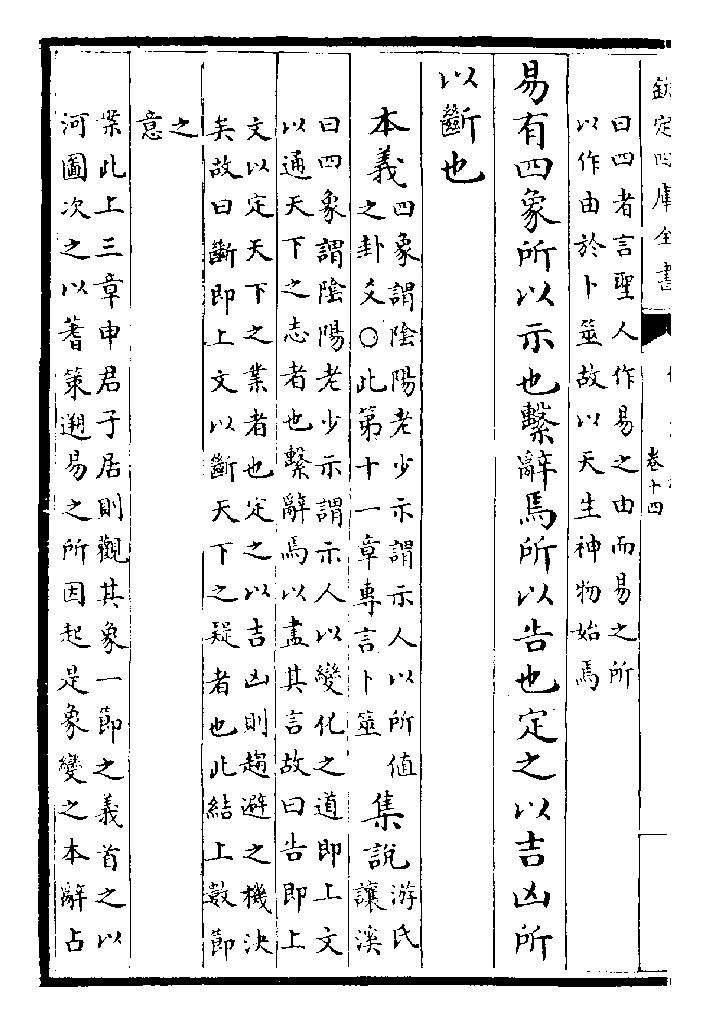 欽定四庫全書
卷十四
曰四者言聖人作易之由而易之所
以作由於卜筮故以天生神物始焉
易有四象所以示也繫辭焉所以告也定之以吉凶所
以斷也
本義四象謂陰陽老少示謂示人以所值
之卦爻○此第十一章專言卜筮
集說游氏
讓溪
曰四象謂陰陽老少示謂示人以變化之道即上文
以通天下之志者也繫辭焉以盡其言故曰告即上
文以定天下之業者也定之以吉凶則趨避之機決
矣故曰斷即上文以斷天下之疑者也此結上數節
之
意
案此上三章申君子居則觀其象一節之義首之以
河圖次之以蓍策遡易之所因起是象變之本辭占